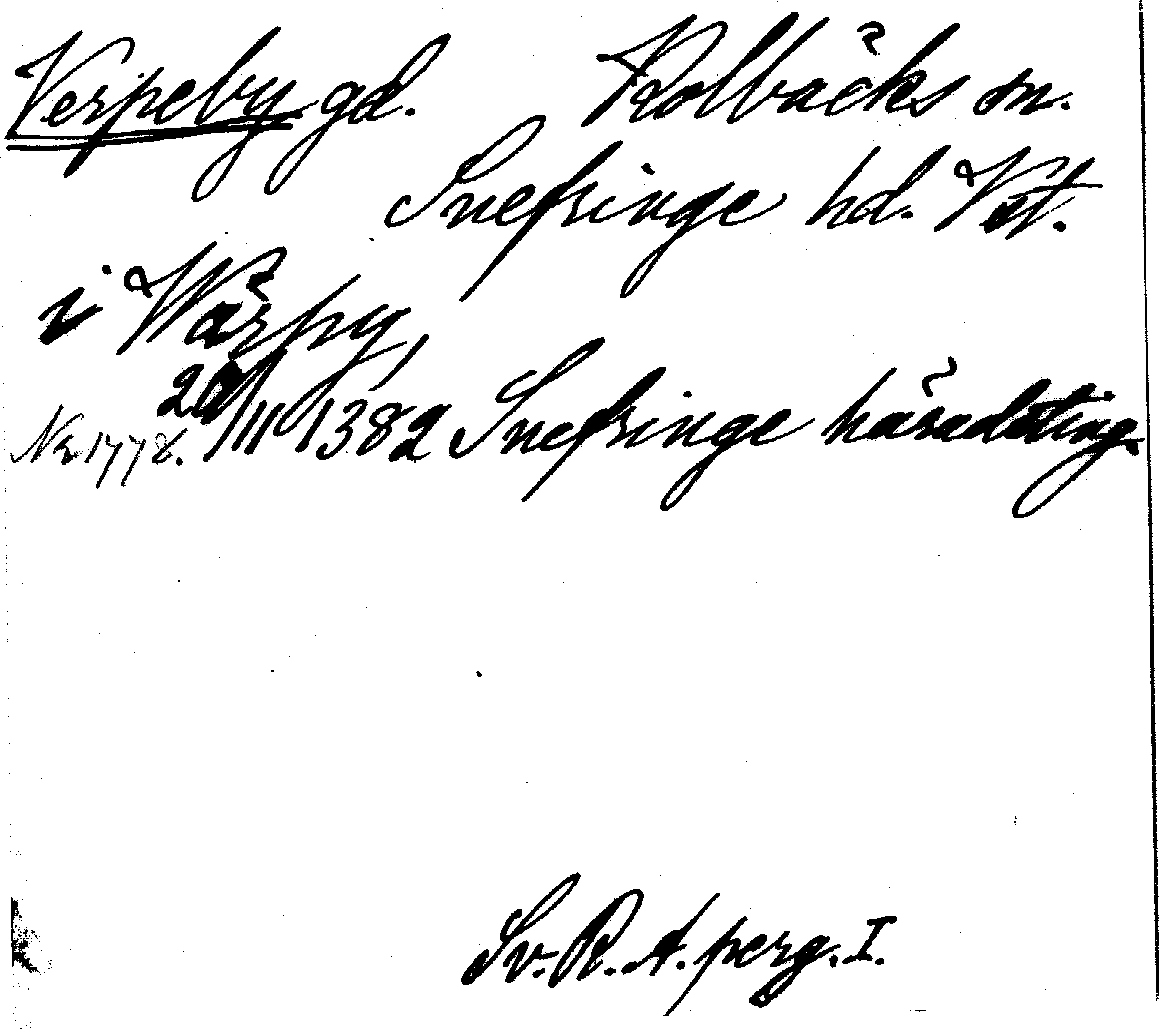 Verpeby gd. Kolbäcks sn.
Snefringe hd. Vst.
i Wärpy,
Nr 1778. 20/11 1382 Snefringe häradsting.
Sv. R. A. perg. I.